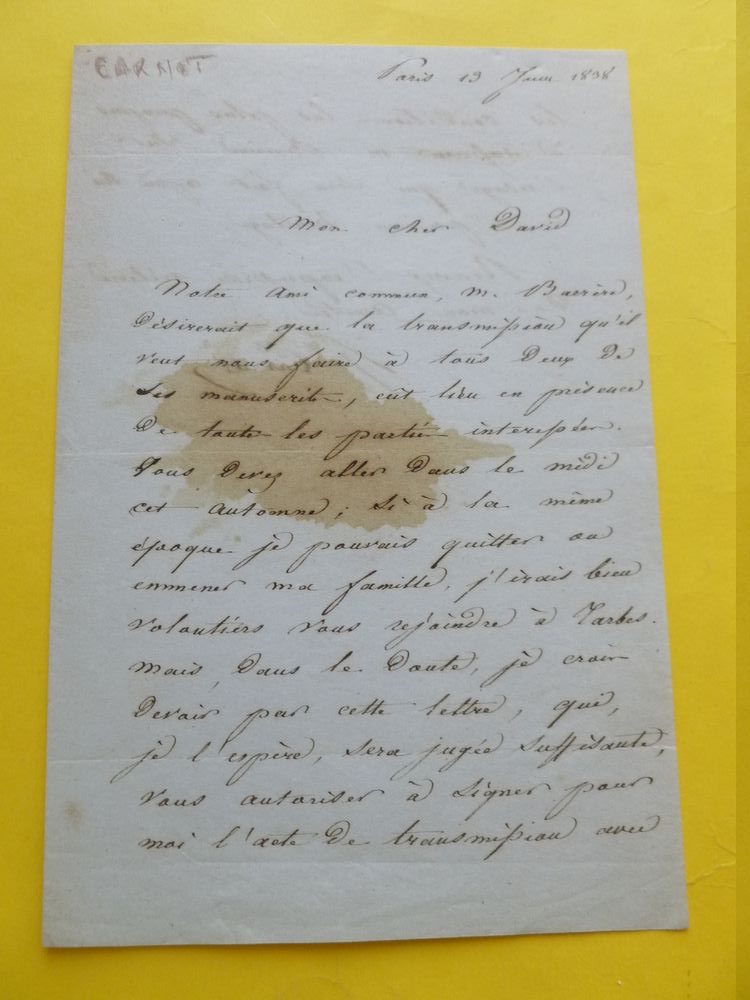 CARNOT
Paris 13 Juin 1838
Mon cher David
Notre ami commun, M. Barère,
désirerait que la transmission qu'il
veut nous faire à tous deux de
ses manuscrits, eût lieu en présence
de toutes les parties intéressées.
Vous devez aller dans le midi
cet automne ; si à la même
époque je pouvais quitter ou
emmener ma famille, j'irais bien
volontiers vous rejoindre à Tarbes.
Mais, dans le doute, je crois
devoir par cette lettre, qui,
je l'espère, sera jugée suffisante,
vous autoriser à signer pour
moi l'acte de transmission avec